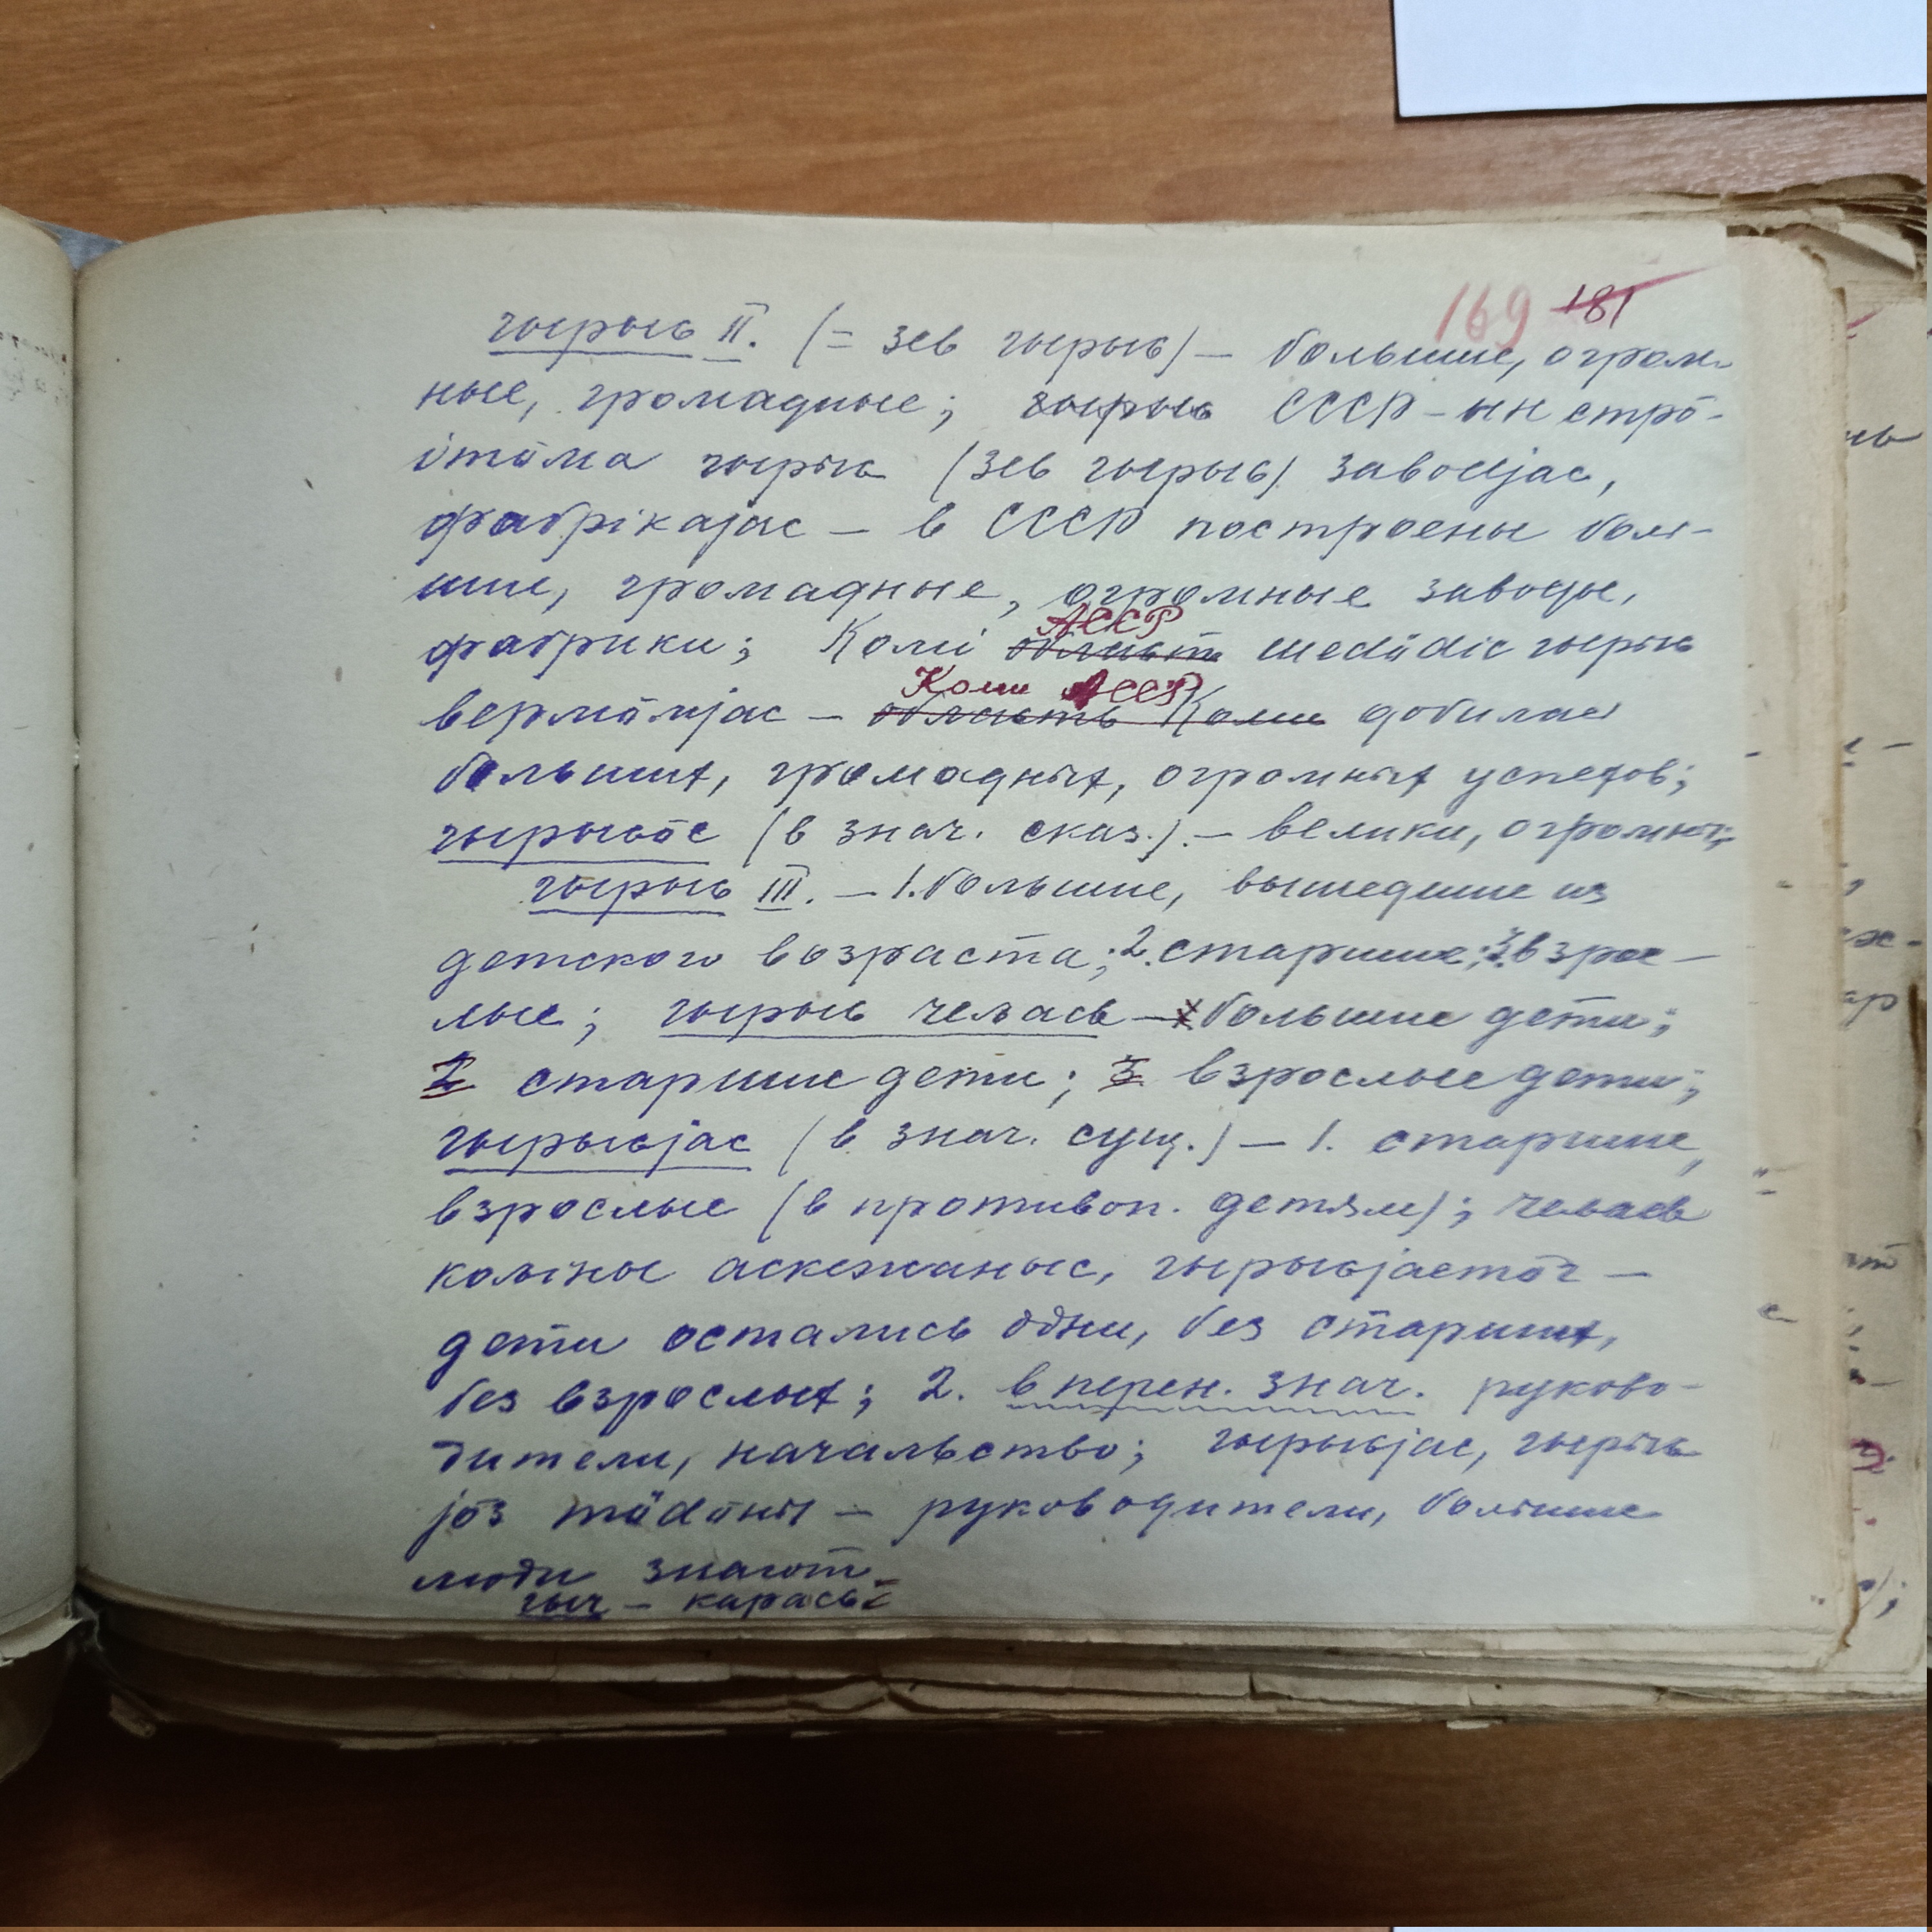 169 181
гырыԍ II. (= зев гырыԍ) – большие, огром-
ные, громадные; гырыԍ СССР-ын стрӧ-
ітӧма гырыԍ (зев гырыԍ) заводјас,
фабрікајас – в СССР построены боль-
шие, громадные, огромные заводы,
АССР
фабрики; Комі област шедӧдіс гырыԍ
Коми АССР
вермӧмјас – область Коми добилась
больших, громадных, огромных успехов;
гырыԍӧԍ (в знач. сказ.). – велики, огромны;
гырыԍ III. – 1. большие, вышедшие из
детского возраста; 2. старшие; 3. взрос-
лые; гырыԍ чељаԃ – 1 большие дети;
2 старшие дети; 3 взрослые дети;
гырыԍјас (в знач. сущ.) – 1. старшие,
взрослые (в противоп. детям); чељаԃ
коԉіны аскежаныс, гырыԍјастӧг –
дети остались одни, без старших,
без взрослых; 2. в перен. знач. руково-
дители, начальство; гырыԍјас, гырыԍ
јӧз тӧдӧны – руководители, большие
люди знают.
гыч – карась